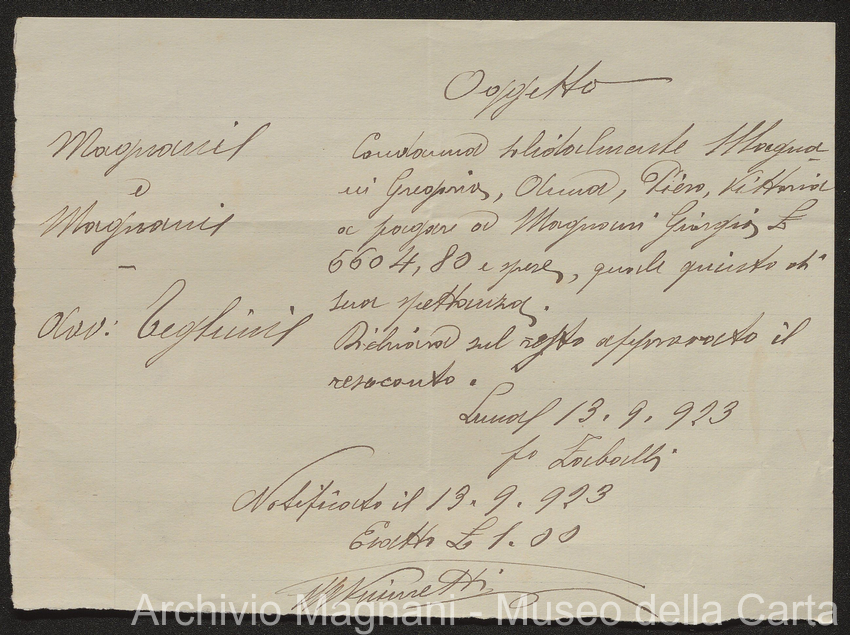 Oggetto
Magnani
e
Magnani
Avv: Teglini
Condanna solidalmente Magna
ni Gregorio, Anna, Piero, Vittoria
a pagare a Magnani Giorgio £
6604,80 e spese, quale quinto di
sua spettanza.
Dichiara sul resto approvato il
resoconto.
13.9.923
fo Zaballi
Notificato il 13.9.923
Esatto £ 1.00
Archivio Magnani - Museo della Carta